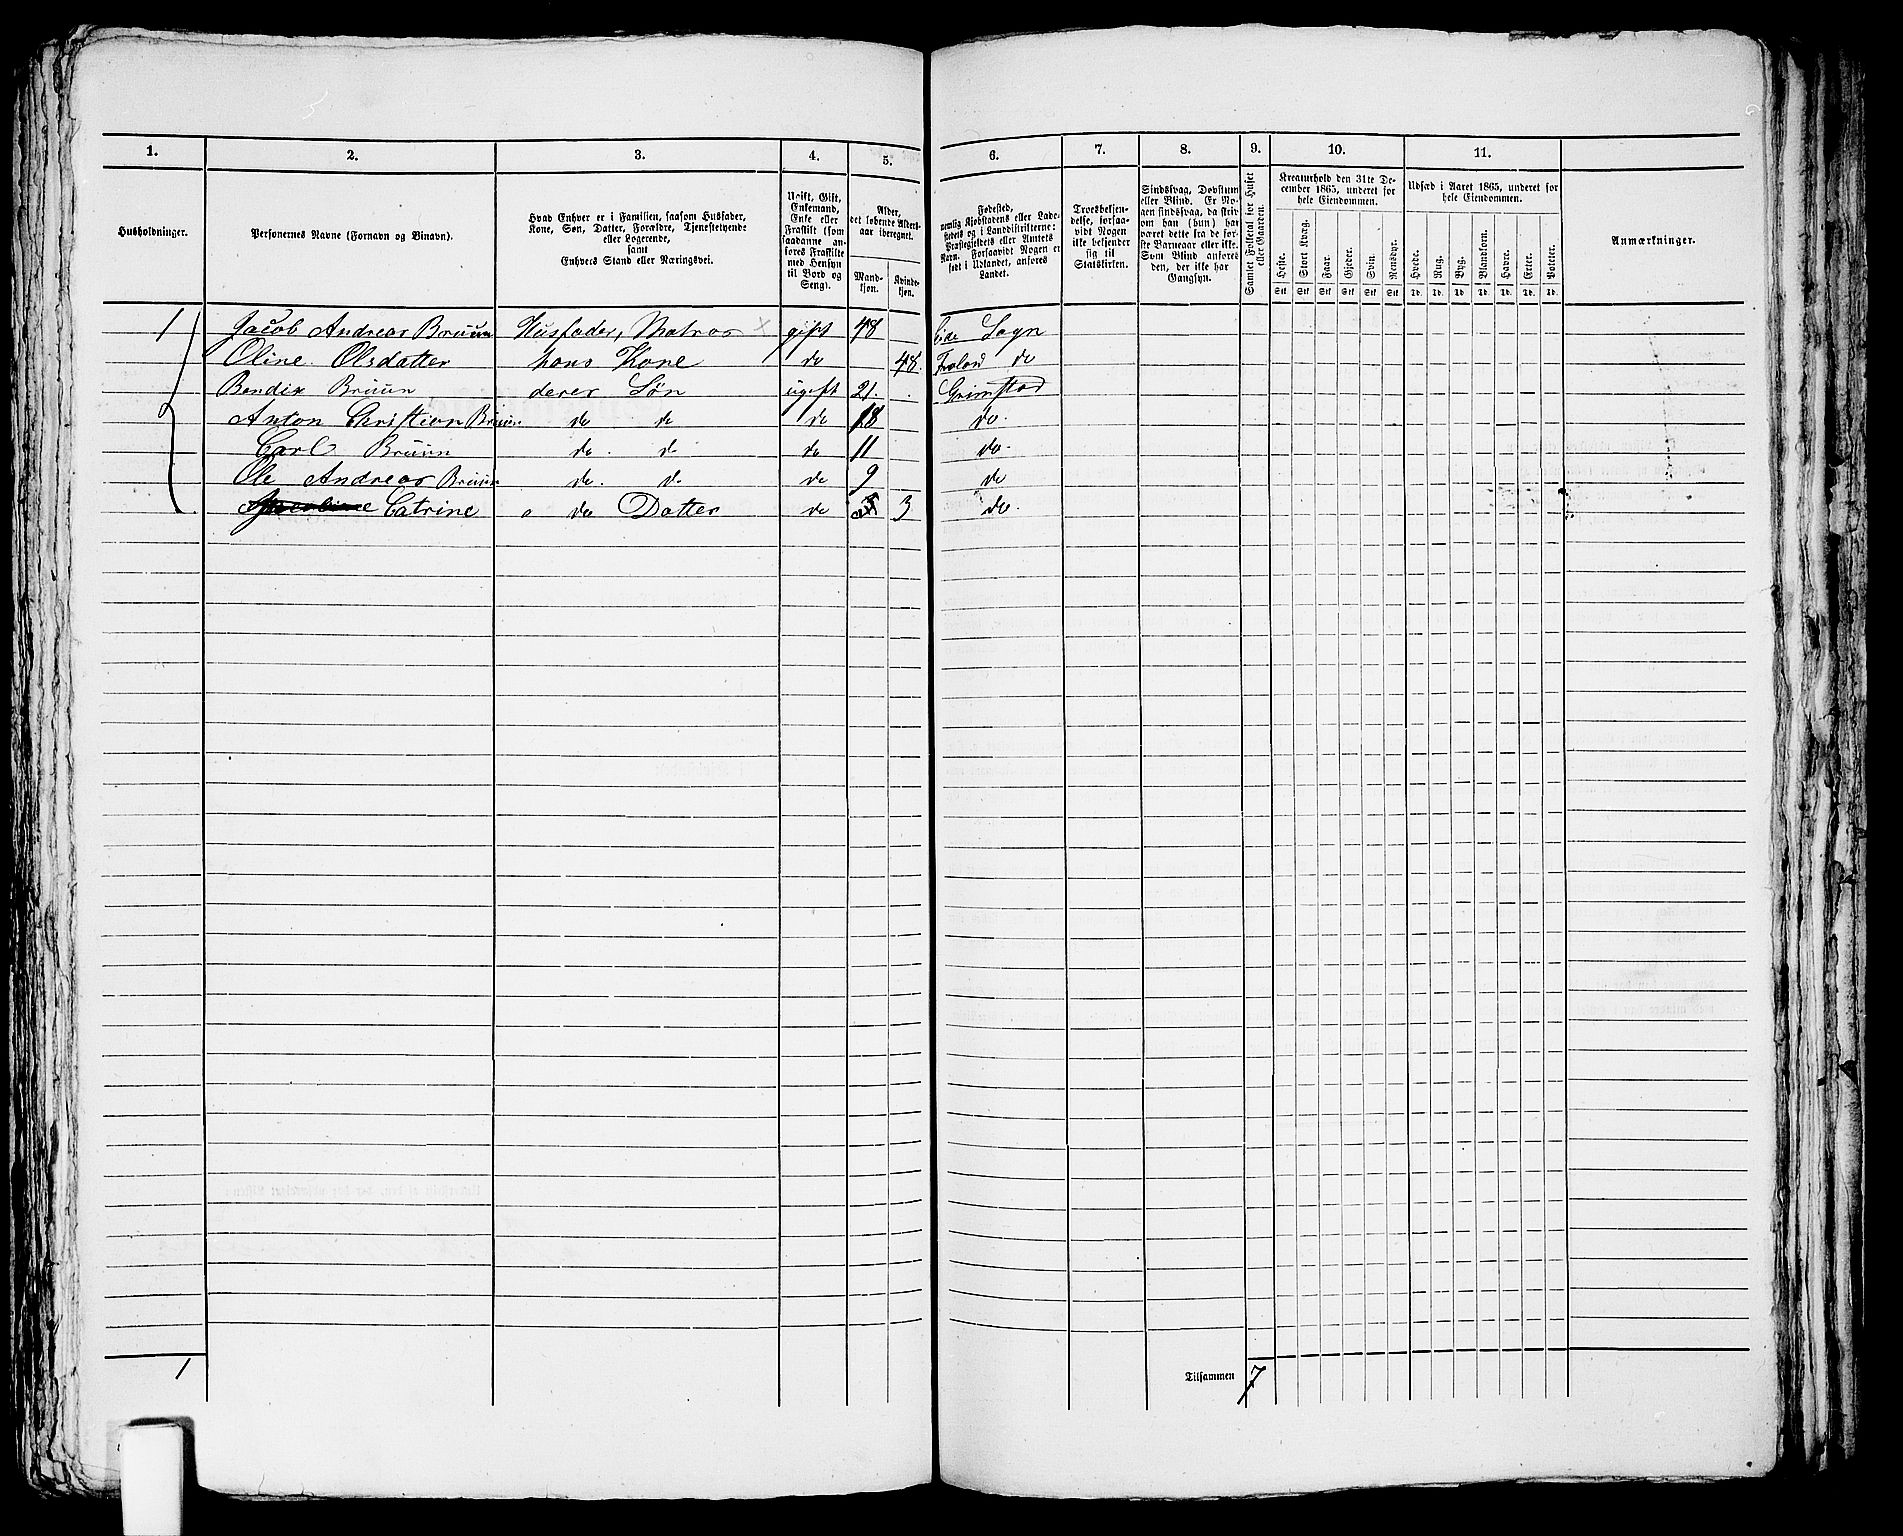 1. 2. 3. 4. 5. 6. 7. 8. 9. 10. 11.
Husholdninger.
Personernes Navne (Fornavn og Tilnavn).
Hvad Enhver er i Familien, saasom Husfader, Kone, Søn, Datter, Forældre, Tjenestetyende eller Logerende, samt Enhvers Stand eller Næringsvei.
Ugift, Gift, Enkemand, Enke eller Fraskilt (som saadanne anføres Fraskilte med Hensyn til Bord og Seng).
Alder, det løbende Aldersaar iberegnet.
Mandkjøn. Kvindekjøn.
Fødested, nemlig Kjøbstadens eller Ladestedets og i Landdistrikterne: Præstegjeldets eller Amtets Navn. Forsaavidt Nogen er født i Udlandet, anføres Landet.
Troesbekjendelse, forsaavidt Nogen ikke bekjender sig til Statskirken.
Sindssvag, Døvstum eller Blind. Er Nogen sindssvag, da skrives, om han (hun) har været dette fra de første Barneaar eller ikke. Som Blind anføres den, der ikke har Gangsyn.
Samlet Folketal for Huset eller Gaarden.
Kreaturhold den 31te December 1865, underet for hele Eiendommen.
Heste. Stort Kvæg. Faar. Gjeder. Svin. Rensdyr.
Stk Stk Stk Stk Stk Stk
Udsæd i Aaret 1865, underet for hele Eiendommen.
Hvede. Rug. Byg. Blandkorn. Havre. Erter. Poteter.
Td. Td. Td Td. Td. Td. Td.
Anmærkninger.
1 Jacob Andreas Bruun Husfader, Matros x gift 48 Eide Sogn
Oline Olsdatter hans Kone do 48. Froland do
Bendix Bruun deres Søn ugift 21. Grimstad
Anton Christian Bruun do do do 18 do.
Carl Bruun do. do do 11 do.
Ole Andreas Bruun do. do do 9 do
Catrine do Datter do 3 do.
1 Tilsammen 7